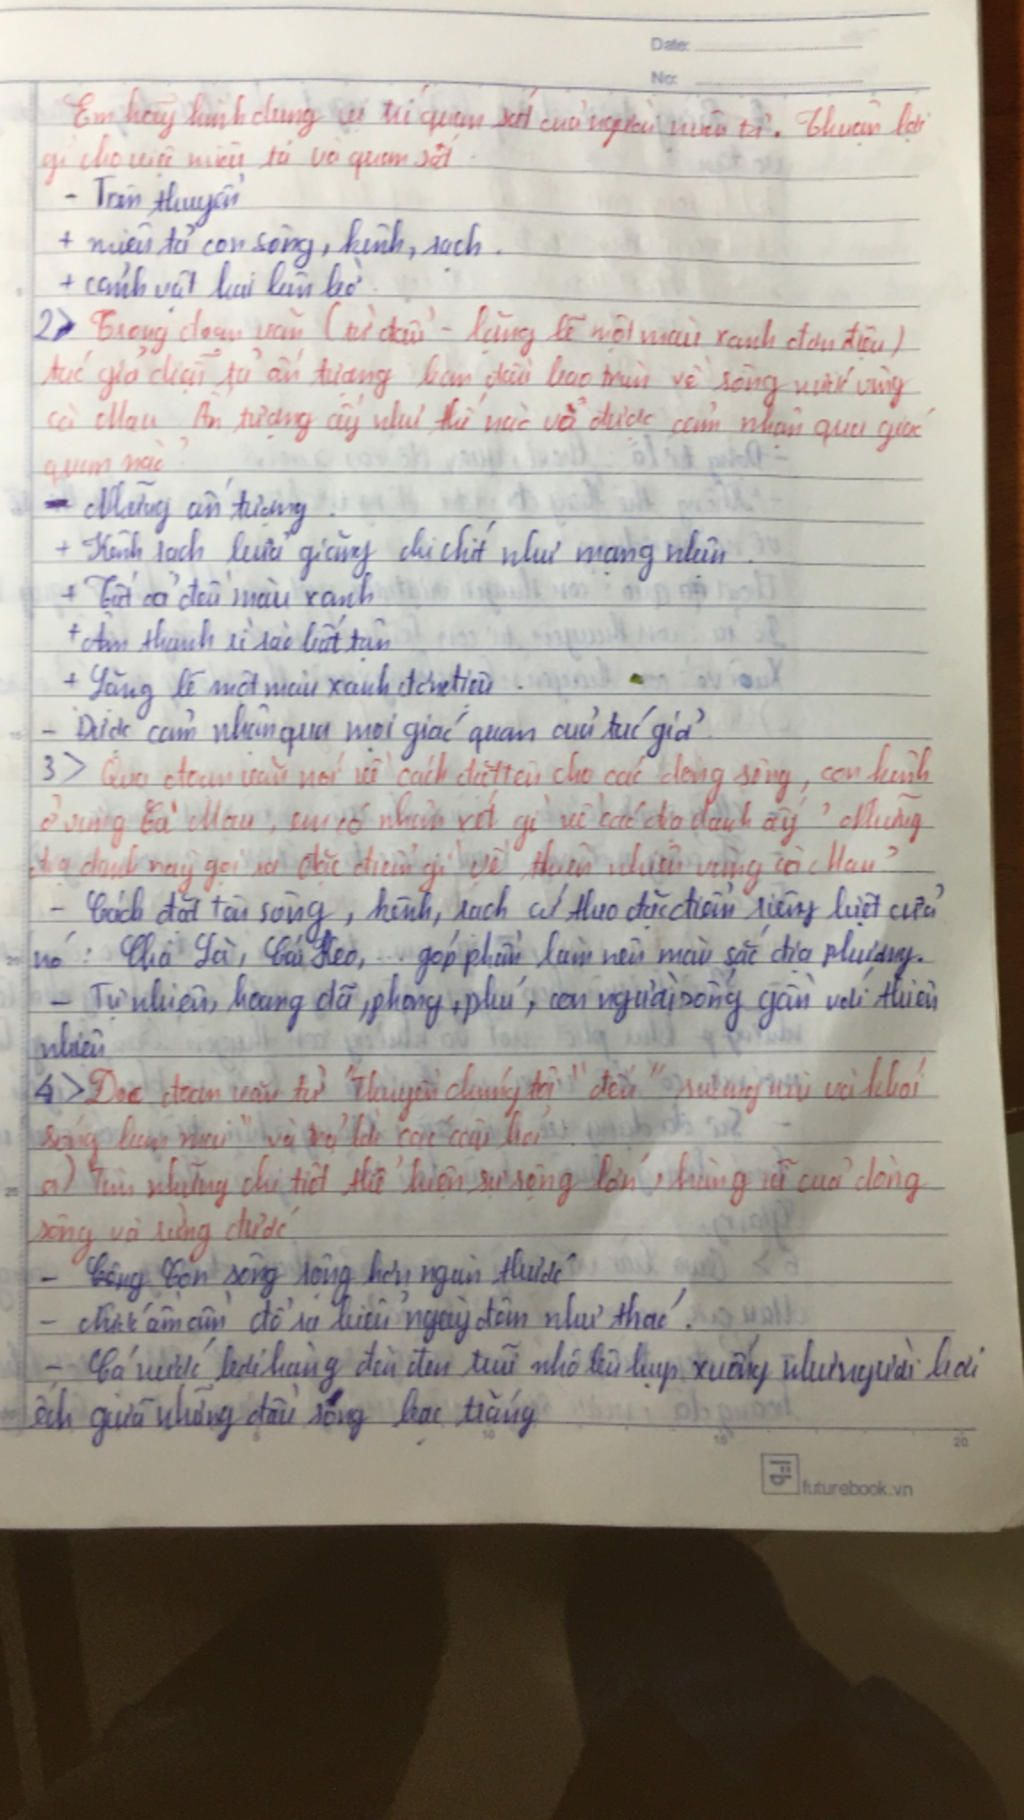 Date:
No:
Em hãy hình dung vị trí quan sát của người miêu tả. Thuận lợi
gì cho việc miêu tả và quan sát
- Trên thuyền
+ miêu tả con sông, kênh, rạch.
+ cảnh vật hai bên bờ.
2> Trong đoạn văn (từ đầu - lặng lẽ một màu xanh đơn điệu)
tác giả diễn tả ấn tượng ban đầu bao trùm về sông nước vùng
cà Mau. Ấn tượng ấy như thế nào và được cảm nhận qua giác
quan nào?
- Những ấn tượng.
+ Kênh rạch bủa giăng chi chít như mạng nhện.
+ Tất cả đều màu xanh
+ Âm thanh rì rào bất tận
+ Lặng lẽ một màu xanh đơn điệu.
- Được cảm nhận qua mọi giác quan của tác giả.
3> Qua đoạn văn nói về cách đặt tên cho các dòng sông, con kênh
ở vùng Cà Mau, em có nhận xét gì về các địa danh ấy? Những
địa danh này gợi ra đặc điểm gì về thiên nhiên vùng cà Mau?
- Cách đặt tên sông, kênh, rạch cứ theo đặc điểm riêng biệt của
nó: Chà Là, Cái Keo,... góp phần làm nên màu sắc địa phương.
- Tự nhiên, hoang dã, phong, phú, con người sống gần với thiên
nhiên
4> Đọc đoạn văn từ "Thuyền chúng tôi" đến "sương mù và khói
sóng ban mai" và trả lời các câu hỏi
a) Tìm những chi tiết thể hiện sự rộng lớn, hùng vĩ của dòng
sông và rừng đước
- Con sông rộng hơn ngàn thước
- nước ầm ầm đổ ra biển ngày đêm như thác.
- Cá nước bơi hàng đàn đen trũi nhô lên hụp xuống như người bơi
ếch giữa những đầu sóng bạc trắng
5 10 15 20
futurebook.vn